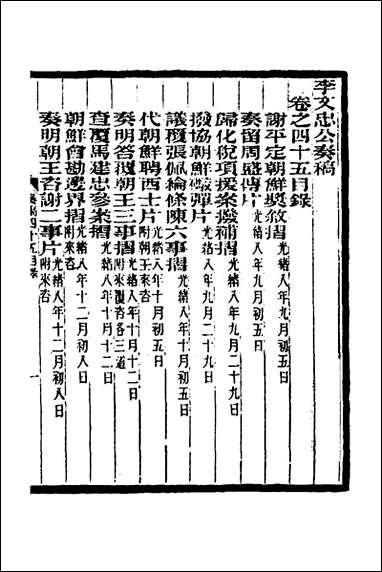 李文忠公奏稿
卷之四十五目錄
謝平定朝鮮獎敘摺 光緒八年九月初五日
奏留周盛傳片 光緒八年九月初五日
歸化倪項援案撥補摺 光緒八年九月二十九日
撥協朝鮮礮彈片 光緒八年九月二十九日
議覆張佩綸條陳六事摺 光緒八年十月初五日
代朝鮮聘西士片 附朝王來咨 光緒八年十月初五日
奏明答覆朝王三事摺 附來覆咨各三道
查覆馬建忠參案摺 光緒八年十月十二日
朝鮮會勘邊界摺 附來咨 光緒八年十二月初八日
奏明朝王咨謝二事片 附來咨 光緒八年十二月初八日
奏稿四十五目錄
一